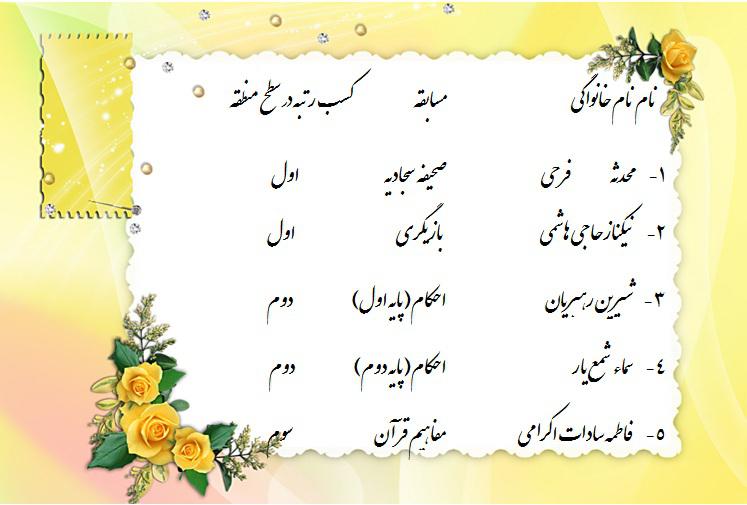 نام نام خانوادگی مسابقه کسب رتبه در سطح منطقه
۱- محدثه فرجی صحیفه سجادیه اول
۲- نیکناز حاجی هاشمی بازیگری اول
۳- شیرین رهبریان احکام (پایه اول) دوم
٤- سماء شمع یار احکام (پایه دوم) دوم
٥- فاطمه سادات اکرامی مفاهیم قرآن سوم